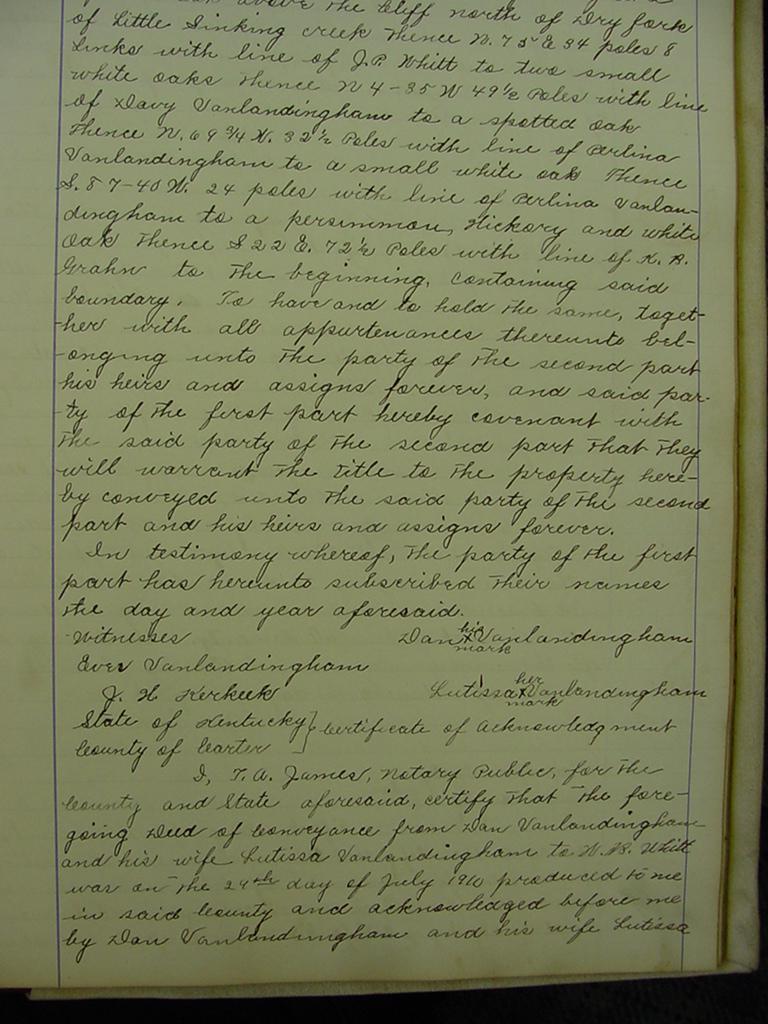 above the Cliff north of Dry fork
of Little Sinking creek Thence N. 75 E 34 poles 8
Links with line of J.P. Whitt to two small
white oaks Thence N 4-35 W 49½ Poles with line
of Davy Vanlandingham to a spotted oak
Thence N. 69¾ W. 32½ Poles with line of Perlina
Vanlandingham to a small white oak Thence
S. 87-40 W. 24 poles with line of Perlina Vanlan-
dingham to a persimmon, Hickory and white
Oak Thence S 22 E. 72½ Poles with line of K. A.
Grahn to the beginning, containing said
boundary. To have and to hold the same, toget-
-her with all appurtenances thereunto bel-
-onging unto the party of the second part
his heirs and assigns forever, and said par-
-ty of the first part hereby covenant with
the said party of the second part that they
will warrant the title to the property here-
-by conveyed unto the said party of the second
part and his heirs and assigns forever.
In testimony whereof, the party of the first
part has hereunto subscribed their names
the day and year aforesaid.
Witnesses Dan his X mark Vanlandingham
Ever Vanlandingham
J. H. Kerkeek Lutissa her X mark Vanlandingham
State of Kentucky } Certificate of Acknowledgment
County of Carter
I, T. A. James, Notary Public, for the
County and State aforesaid, certify that the fore-
going Deed of Conveyance from Dan Vanlandingham
and his wife Lutissa Vanlandingham to W. R. Whitt
was on the 24th day of July 1910 produced to me
in said County and acknowledged before me
by Dan Vanlandingham and his wife Lutissa